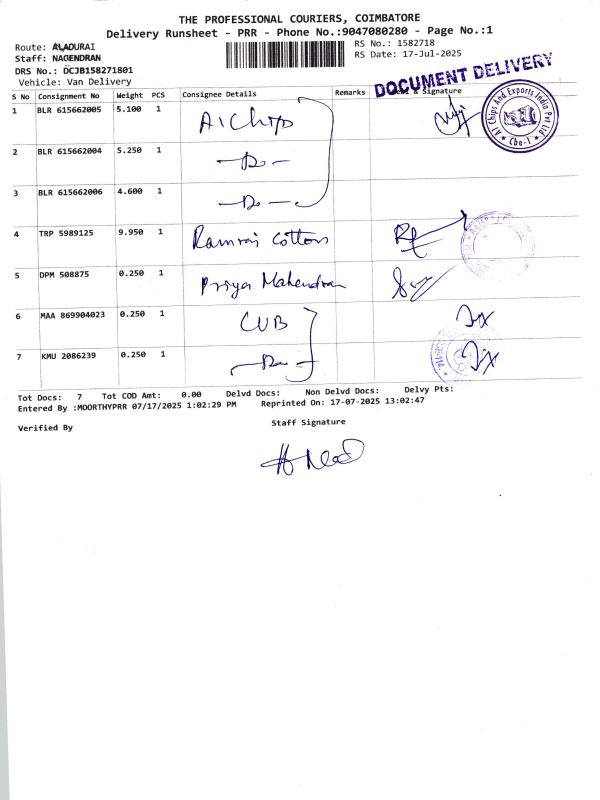 THE PROFESSIONAL COURIERS, COIMBATORE
Delivery Runsheet - PRR - Phone No.:9047080280 - Page No.:1
Route: ALADURAI
RS No.: 1582718
Staff: NAGENDRAN
RS Date: 17-Jul-2025
DRS No.: DCJB158271801
Vehicle: Van Delivery
DOCUMENT DELIVERY
S No Consignment No Weight PCS Consignee Details Remarks & Signature
1 BLR 615662005 5.100 1 A1 Chips
A1 Chips And Exports India Pvt Ltd * Cbe-1 *
2 BLR 615662004 5.250 1 -Do-
3 BLR 615662006 4.600 1 -Do-
4 TRP 5989125 9.950 1 Ramraj Cotton
5 DPM 508875 0.250 1 Priya Mahendran
6 MAA 869904023 0.250 1 CUB
7 KMU 2086239 0.250 1 -Do-
Tot Docs: 7 Tot COD Amt: 0.00 Delvd Docs: Non Delvd Docs: Delvy Pts:
Entered By :MOORTHYPRR 07/17/2025 1:02:29 PM Reprinted On: 17-07-2025 13:02:47
Verified By Staff Signature